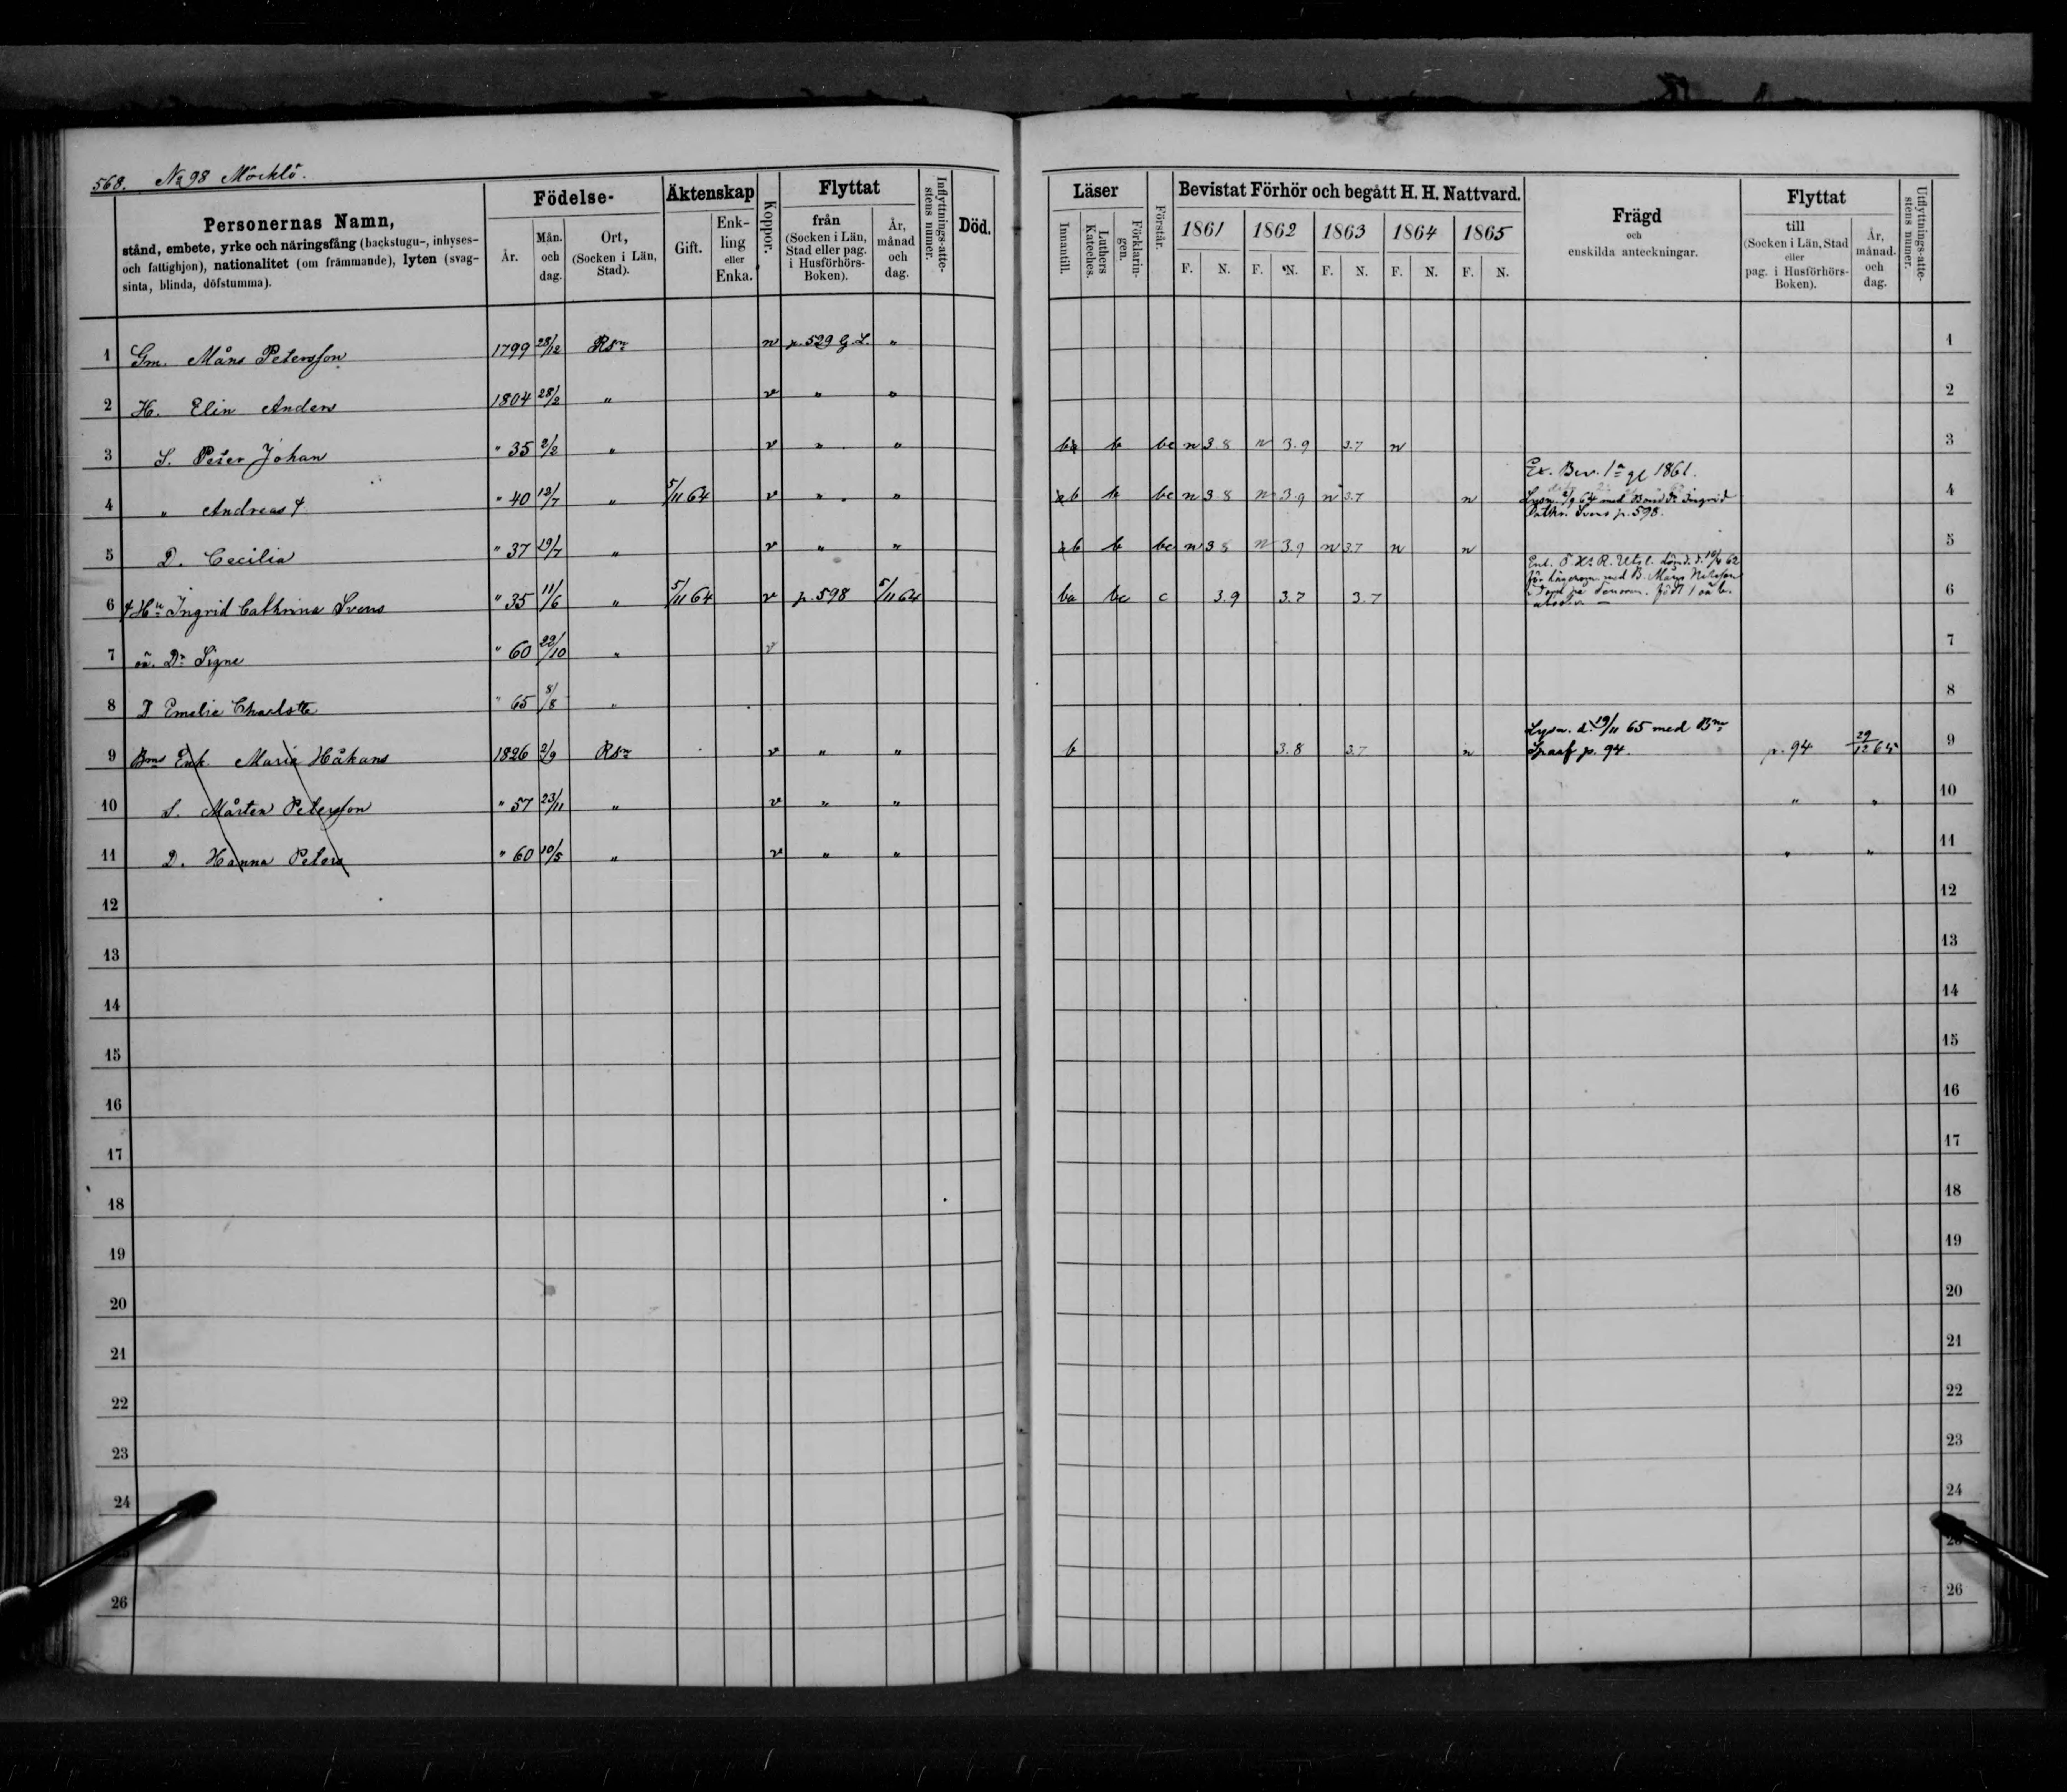 568. No 98 Möcklö.
Personernas Namn,
stånd, embete, yrke och näringsfång (backstugu-, inhyses-
och fattighjon), nationalitet (om främmande), lyten (svag-
sinta, blinda, döfstumma).
Födelse-
År.
Mån. och dag.
Ort, (Socken i Län, Stad).
Äktenskap
Gift.
Enk- ling eller Enka.
Koppor.
Flyttat
från (Socken i Län, Stad eller pag. i Husförhörs- Boken).
År, månad och dag.
Inflyttnings-atte- stens numer.
Död.
Läser
Innantill.
Luthers Kateches.
Förklarin- gen.
Förstår.
Bevistat Förhör och begått H. H. Nattvard.
1861 1862 1863 1864 1865
F. N. F. N. F. N. F. N. F. N.
Frägd
och
enskilda anteckningar.
Flyttat
till (Socken i Län, Stad eller pag. i Husförhörs- Boken).
År, månad. och dag.
Utflyttnings-atte- stens numer.
1 Gm. Måns Petersson 1799 28/12 Rbn p. 529 G. L. " 1
2 H. Elin Anders 1804 28/2 " v " " 2
3 S. Peter Johan " 35 2/2 " v " " b bc n 3.8 n 3.9 3.7 n 3
Ex. Bev. 1861.
4 " Andreas " 40 12/7 " 5/11 64 v " " b b bc n 3.8 n 3.9 n 3.7 n Lysn. 64 med Ingrid 4
Cathr. Svens p. 598.
5 D. Cecilia " 37 19/7 " v " " b b bc n 3.8 n 3.9 n 3.7 n n 5
Enl. R. Utsl. 62
med B. Måns Nilsson
6 Hu Ingrid Cathrina Svens " 35 11/6 " 5/11 64 v p. 598 5/11 64 ba bc c 3.9 3.7 3.7 6
7 oä. Dr Signe " 60 22/10 " v 7
8 D Emelie Charlotte " 65 8/8 " 8
Lysn. d. 19/11 65 med Bm
9 Bms Enk. Maria Håkans 1826 2/9 Rbn v " " b 3.8 3.7 n Spaaf p. 94. p. 94 29/12 65 9
10 S. Mårten Petersson " 57 23/11 " v " " " " 10
11 D. Hanna Peters " 60 10/5 " v " " " " 11
12 12
13 13
14 14
15 15
16 16
17 17
18 18
19 19
20 20
21 21
22 22
23 23
24 24
26 26